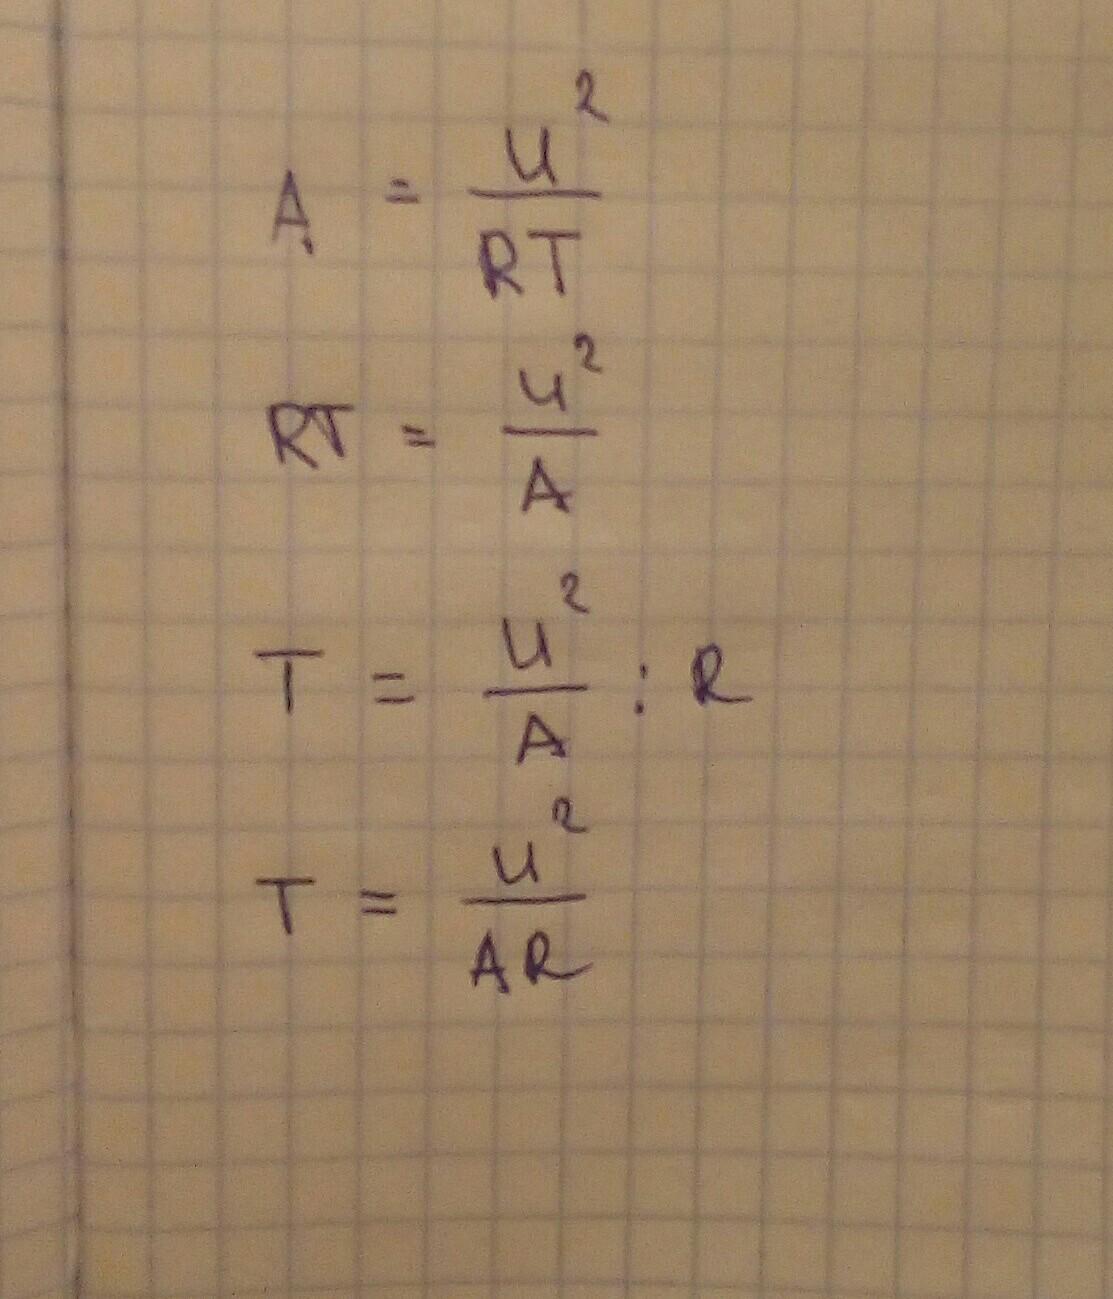 A = u²/RT
RT = u²/A
T = u²/A : R
T = u²/AR